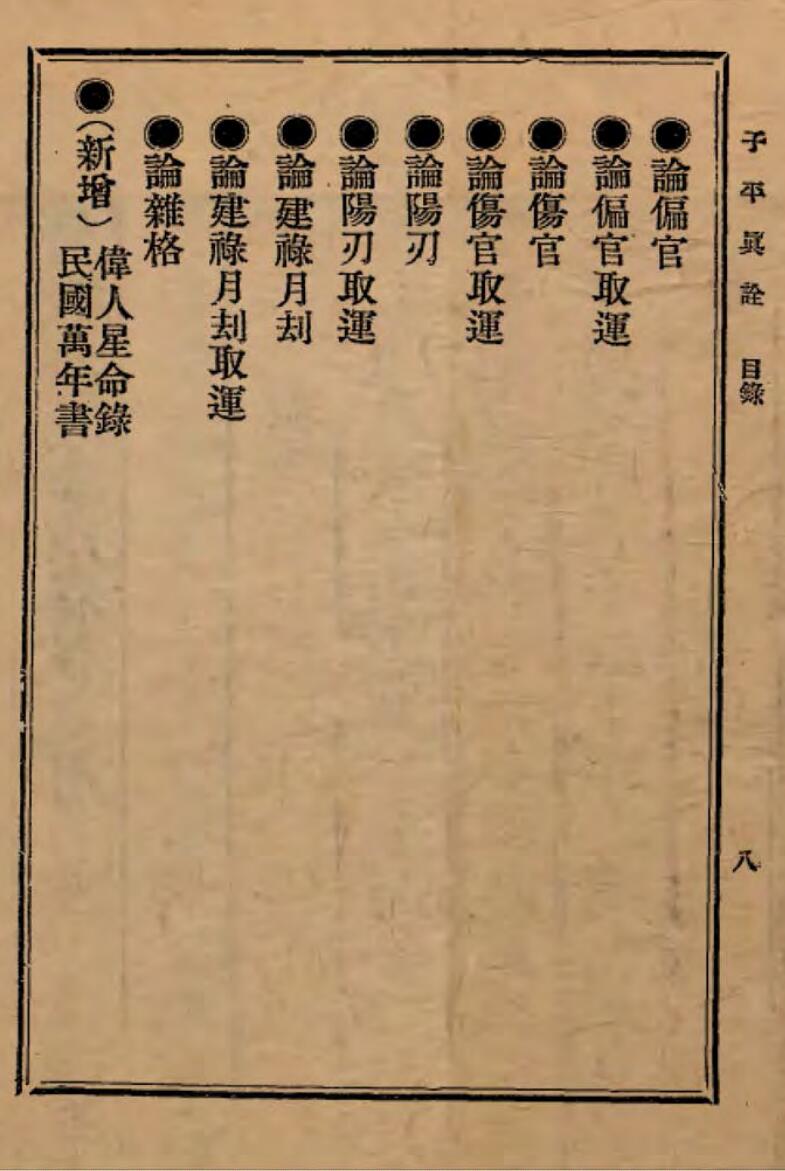 子平眞詮 目錄 八
●論偏官
●論偏官取運
●論傷官
●論傷官取運
●論陽刃
●論陽刃取運
●論建祿月刦
●論建祿月刦取運
●論雜格
●（新增）
偉人星命錄
民國萬年書